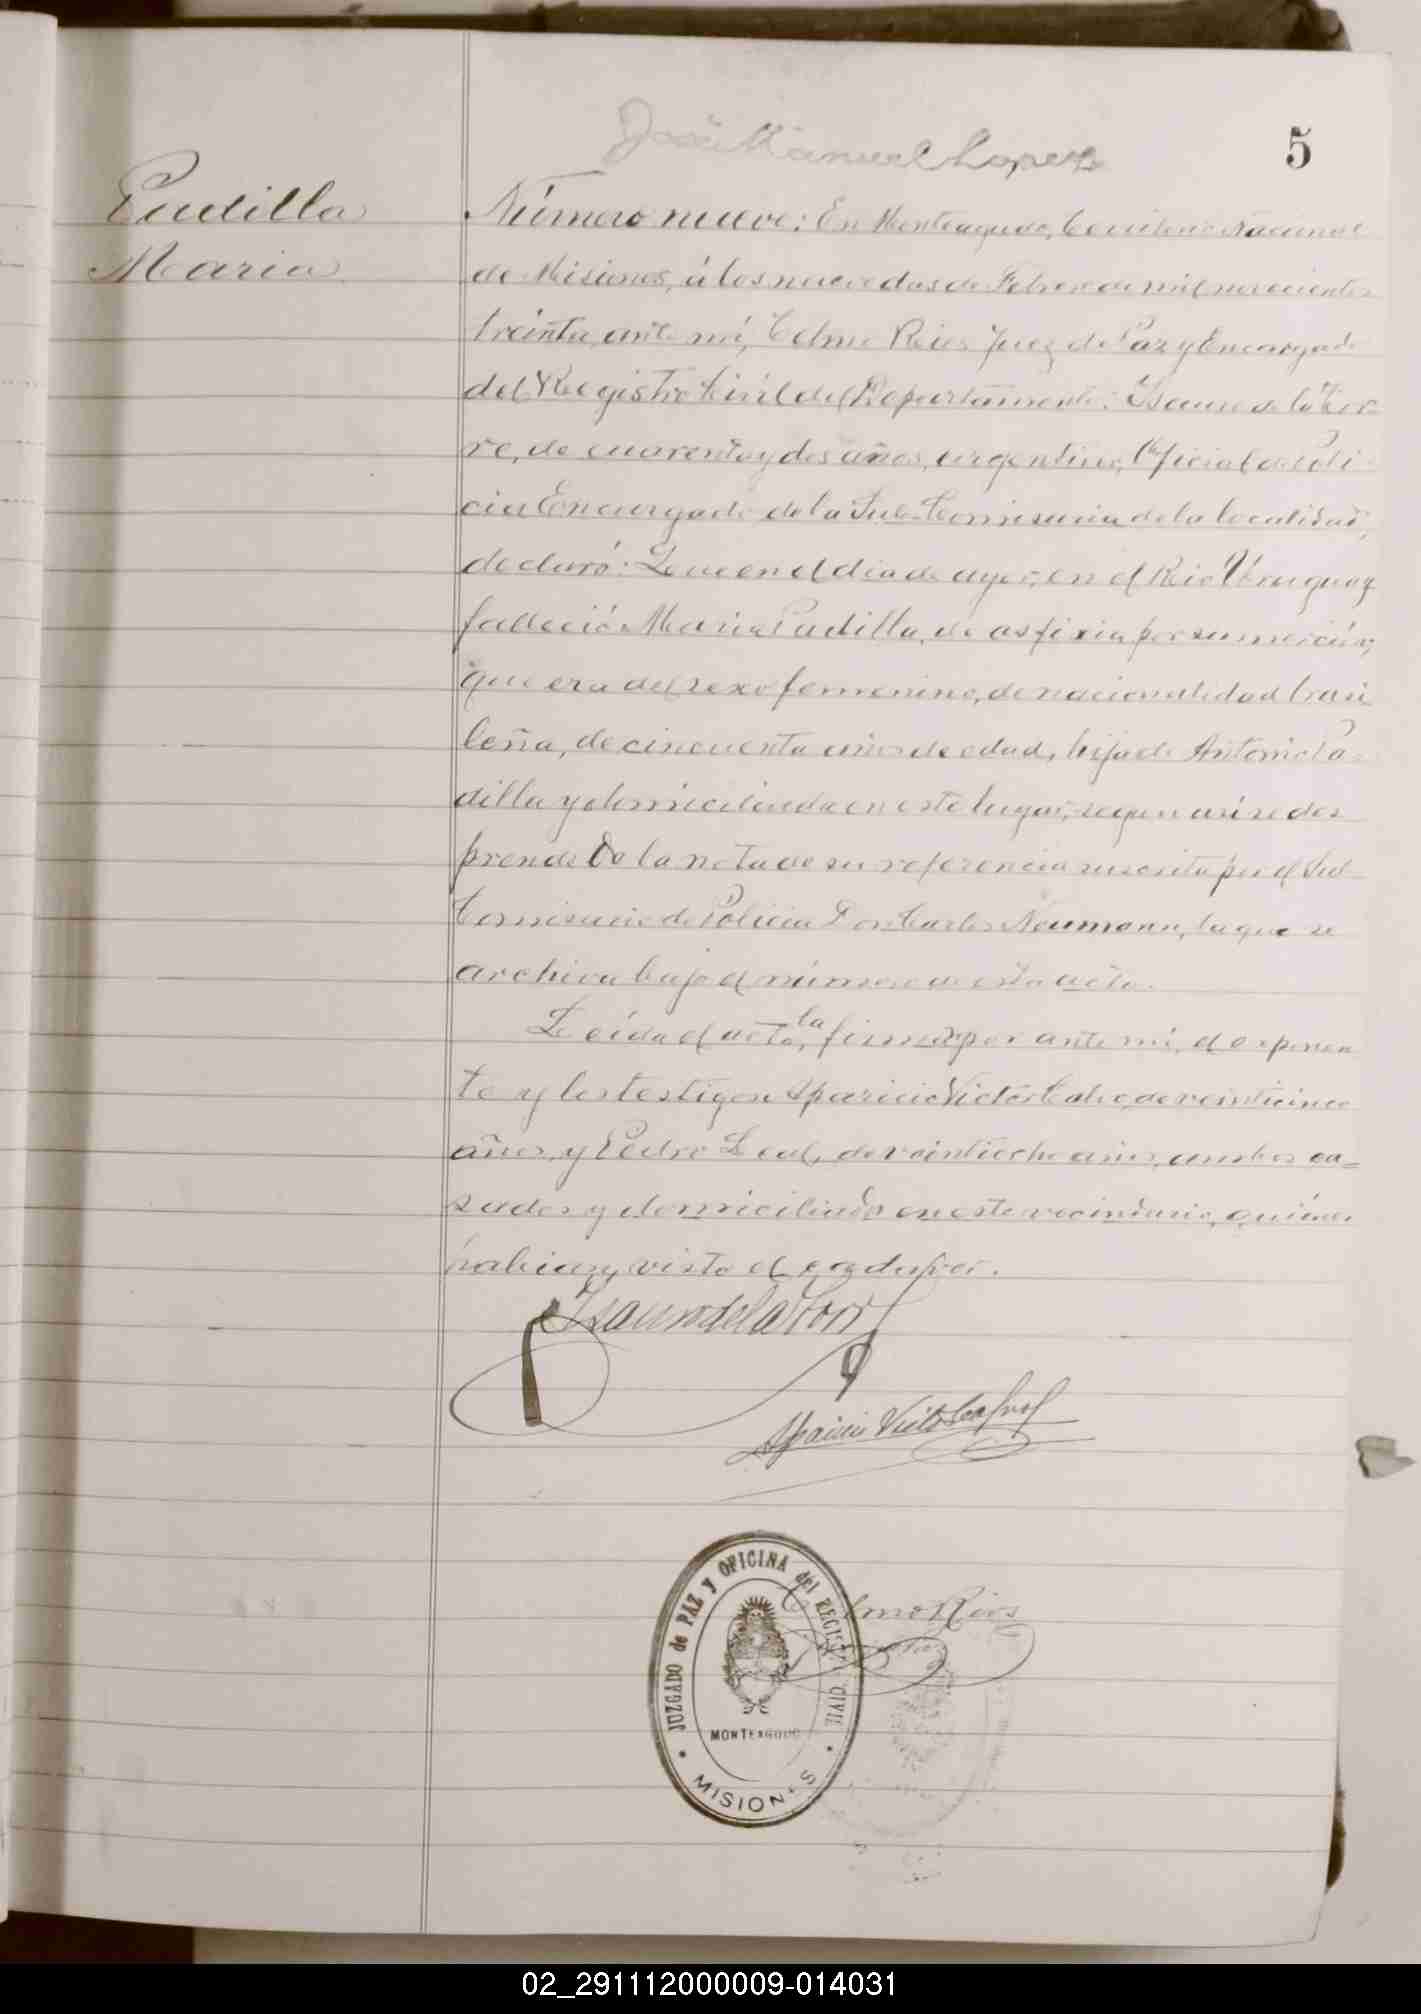 José Manuel Lopez
5
Padilla
Maria
Número nueve: En Monteagudo, Territorio Nacional
de Misiones, á los nueve dias de Febrero de mil novecientos
treinta, ante mí, Telmo Rios Juez de Paz y Encargado
del Registro Civil del Departamento: Isauro de la Tor-
re, de cuarenta y dos años, argentino, Oficial de Poli-
cia Encargado de la Sub-Comisaria de la localidad,
declaró: Que en el dia de ayer, en el Rio Uruguay
falleció Maria Padilla, de asfixia por sumerción;
que era del sexo femenino, de nacionalidad brasi
leña, de cincuenta años de edad, hija de Antonio Pa-
dilla y domiciliada en este lugar, segun asi se des
prende de la nota de su referencia suscrita por el Sub-
Comisario de Policia Don Carlos Neumann, la que se
archiva bajo el número de esta acta.
Leída el acta, la firmó por ante mí, el exponen
te y los testigos Aparicio Victor Cabral, de veinticinco
años, y Pedro Leal, de veintiocho años, ambos ca=
sados y domiciliados en este vecindario, quiénes
habian visto el cadaver.
Isauro de la Torre
Aparicio Victor Cabral
Telmo Rios
JUZGADO de PAZ y OFICINA del REGISTRO CIVIL
MONTEAGUDO
MISIONES
02_291112000009-014031